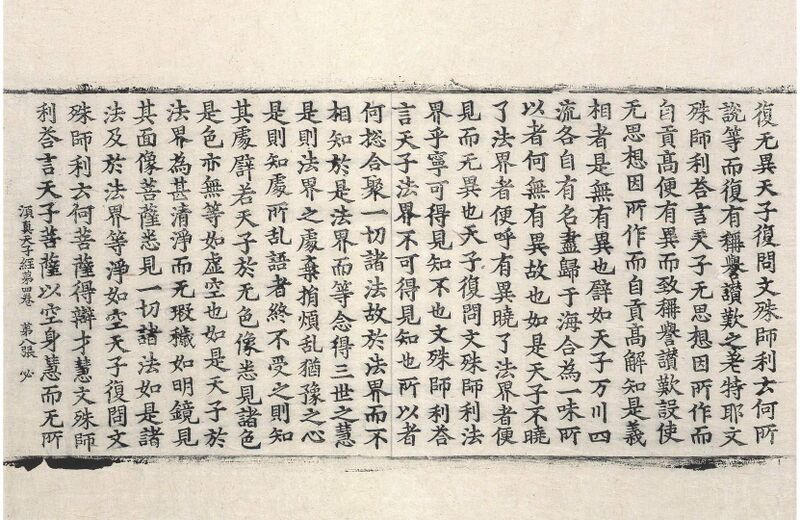 復无異天子復問文殊師利云何所
說等而復有稱譽讃歎之差特耶文
殊師利荅言天子无思想因所作而
自貢髙便有異而致稱譽讃歎設使
无思想因所作而自貢髙解知是義
相者是無有異也譬如天子万川四
流各自有名盡歸于海合為一味所
以者何無有異故也如是天子不曉
了法界者便呼有異曉了法界者便
見而无異也天子復問文殊師利法
界乎寧可得見知不也文殊師利荅
言天子法界不可得見知也所以者
何揔合聚一切諸法故於法界而不
相知於是法界而等念得三世之慧
是則法界之處棄捐煩乱猶豫之心
是則知處所乱語者終不受之則知
其處譬若天子於无色像悉見諸色
是色亦無等如虛空也如是天子於
法界為甚清淨而无瑕穢如明鏡見
其面像菩薩悉見一切諸法如是諸
法及於法界等淨如空天子復問文
殊師利云何菩薩得辯才慧文殊師
利荅言天子菩薩以空身慧而无所
湏真天子經第四卷 第八張 必